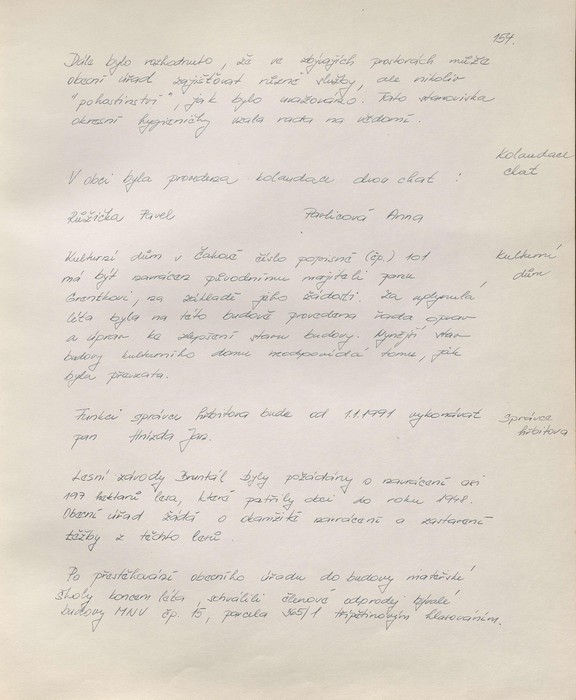 154.
Dále bylo rozhodnuto, že ve zbývajících prostorách může
obecní úřad zajišťovat různé služby, ale nikoliv
"pohostinství", jak bylo uvažováno. Tato stanoviska
okresní hygieničky vzala rada na vědomí.
Kolaudace
chat
V obci byla provedena kolaudace dvou chat :
Růžička Pavel Pavlicová Anna
Kulturní dům v Čakové číslo popisné (čp.) 101
Kulturní
dům
má být navrácen původnímu majiteli panu
na základě jeho žádosti. Za uplynulá
léta byla na této budově provedena řada oprav
a úprav ke zlepšení stavu budovy. Nynější stav
budovy kulturního domu neodpovídá tomu, jak
byla převzata.
Funkci správce hřbitova bude od 1.1.1991 vykonávat
Správce
hřbitova
pan Hnízda Jan.
Lesní závody Bruntál byly požádány o navrácení asi
197 hektarů lesa, které patřily obci do roku 1948.
Obecní úřad žádá o okamžité navrácení a zastavení
těžby z těchto lesů.
Po přestěhování obecního úřadu do budovy mateřské
školy koncem léta, schválili členové odprodej bývalé
budovy MNV čp. 15, parcela 365/1 hlasováním.